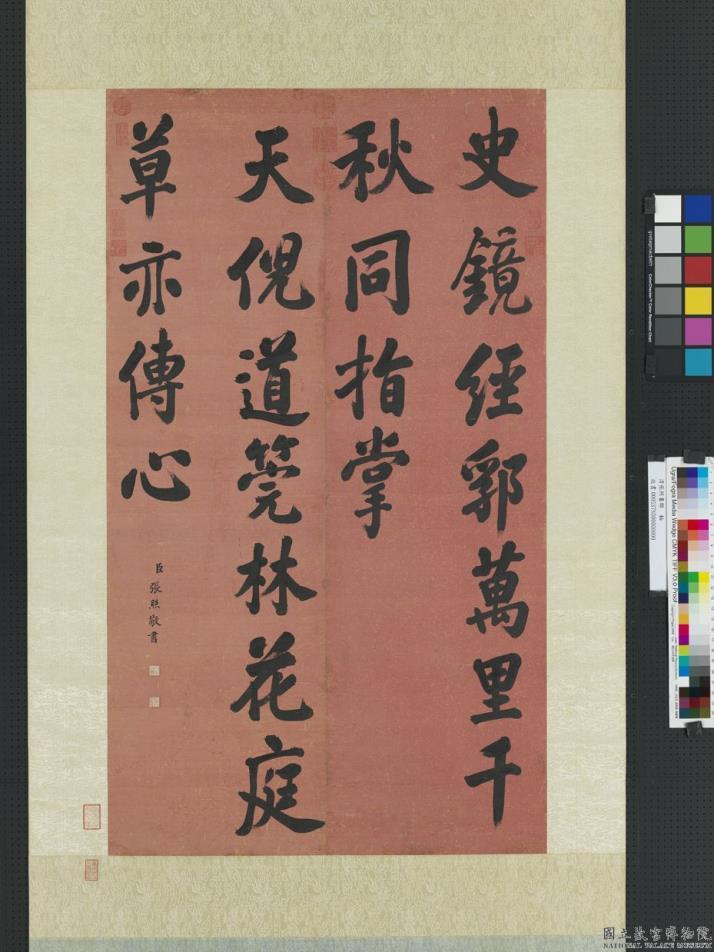 史鏡經郛萬里千
秋同指掌
天倪道筦林花庭
草亦傳心
臣張照敬書
國立故宮博物院
NATIONAL PALACE MUSEUM